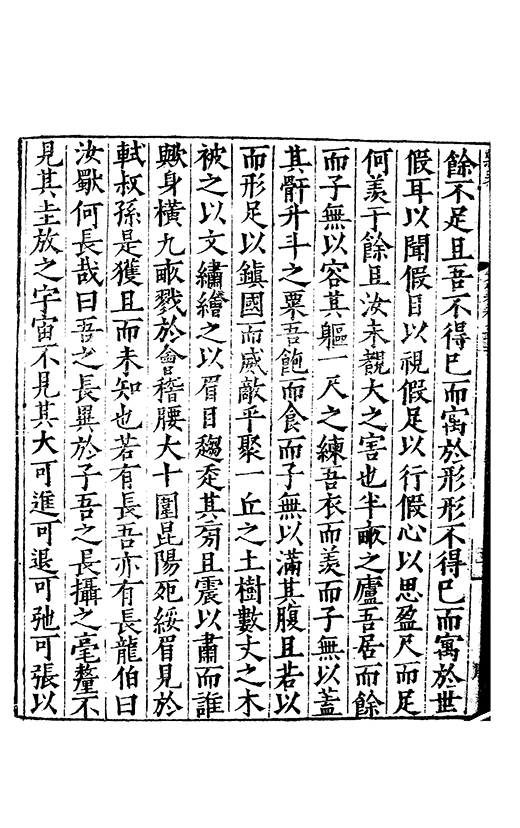 餘不足且吾不得已而寓於形形不得已而寓於世
假耳以聞假目以視假足以行假心以思盈尺而足
何羨于餘且汝未覩大之害也半畝之廬吾居而餘
而子無以容其軀一尺之練吾衣而羨而子無以蓋
其骭升斗之粟吾飽而食而子無以滿其腹且若以
而形足以鎮國而威敵乎聚一丘之土樹數丈之木
被之以文繡繪之以眉目魏茺其旁且震以肅而誰
歟身橫九畝戮於會稽腰大十圍昆陽死綏眉見於
軾叔孫是獲且而未知也若有長吾亦有長龍伯曰
汝歇何長哉曰吾之長異於子吾之長攝之毫釐不
見其圭放之宇宙不見其大可進可退可弛可張以